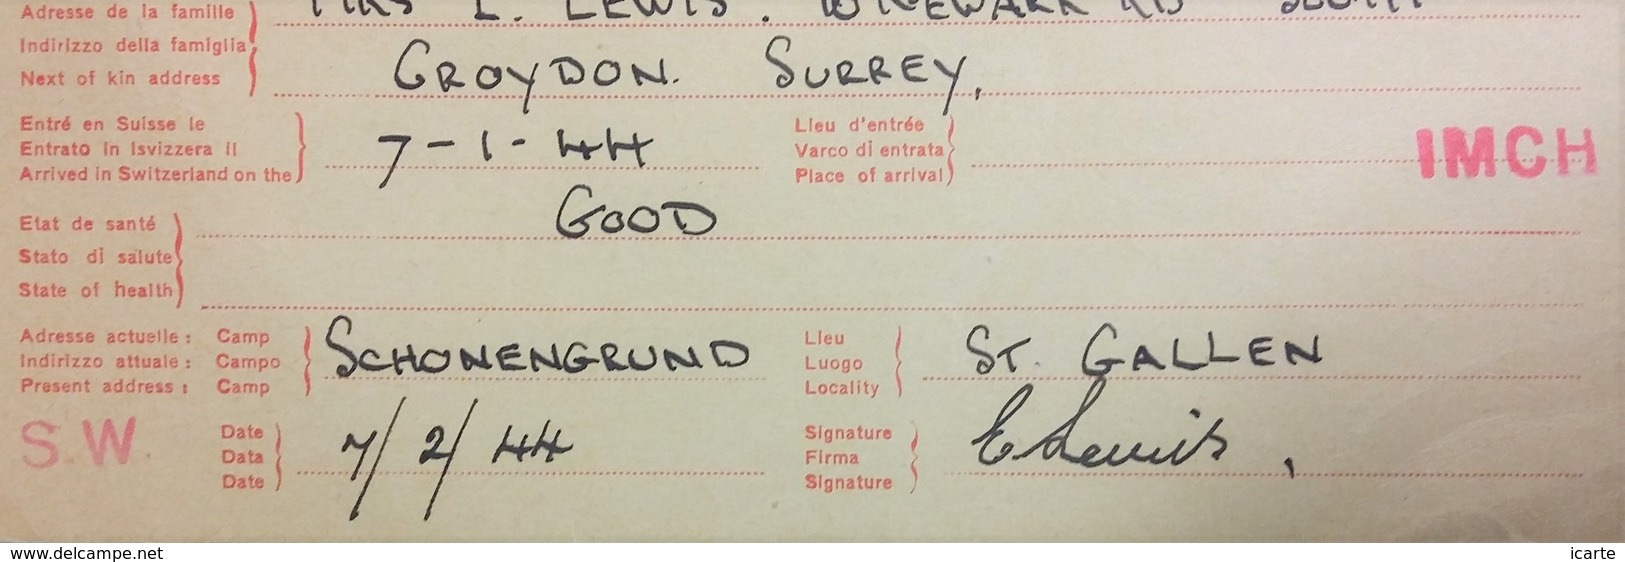 Adresse de la famille MRS E. LEWIS. 10 NEWARK RD
Indirizzo della famiglia
Next of kin address CROYDON. SURREY.
Entré en Suisse le Lieu d'entrée
Entrato in Isvizzera il 7-1-44 Varco di entrata IMCH
Arrived in Switzerland on the Place of arrival
Etat de santé GOOD
Stato di salute
State of health
Adresse actuelle: Camp SCHONENGRUND Lieu ST. GALLEN
Indirizzo attuale: Campo Luogo
Present address: Camp Locality
S.W. Date 7/2/44 Signature E Lewis.
Data Firma
Date Signature
www.delcampe.net icarte